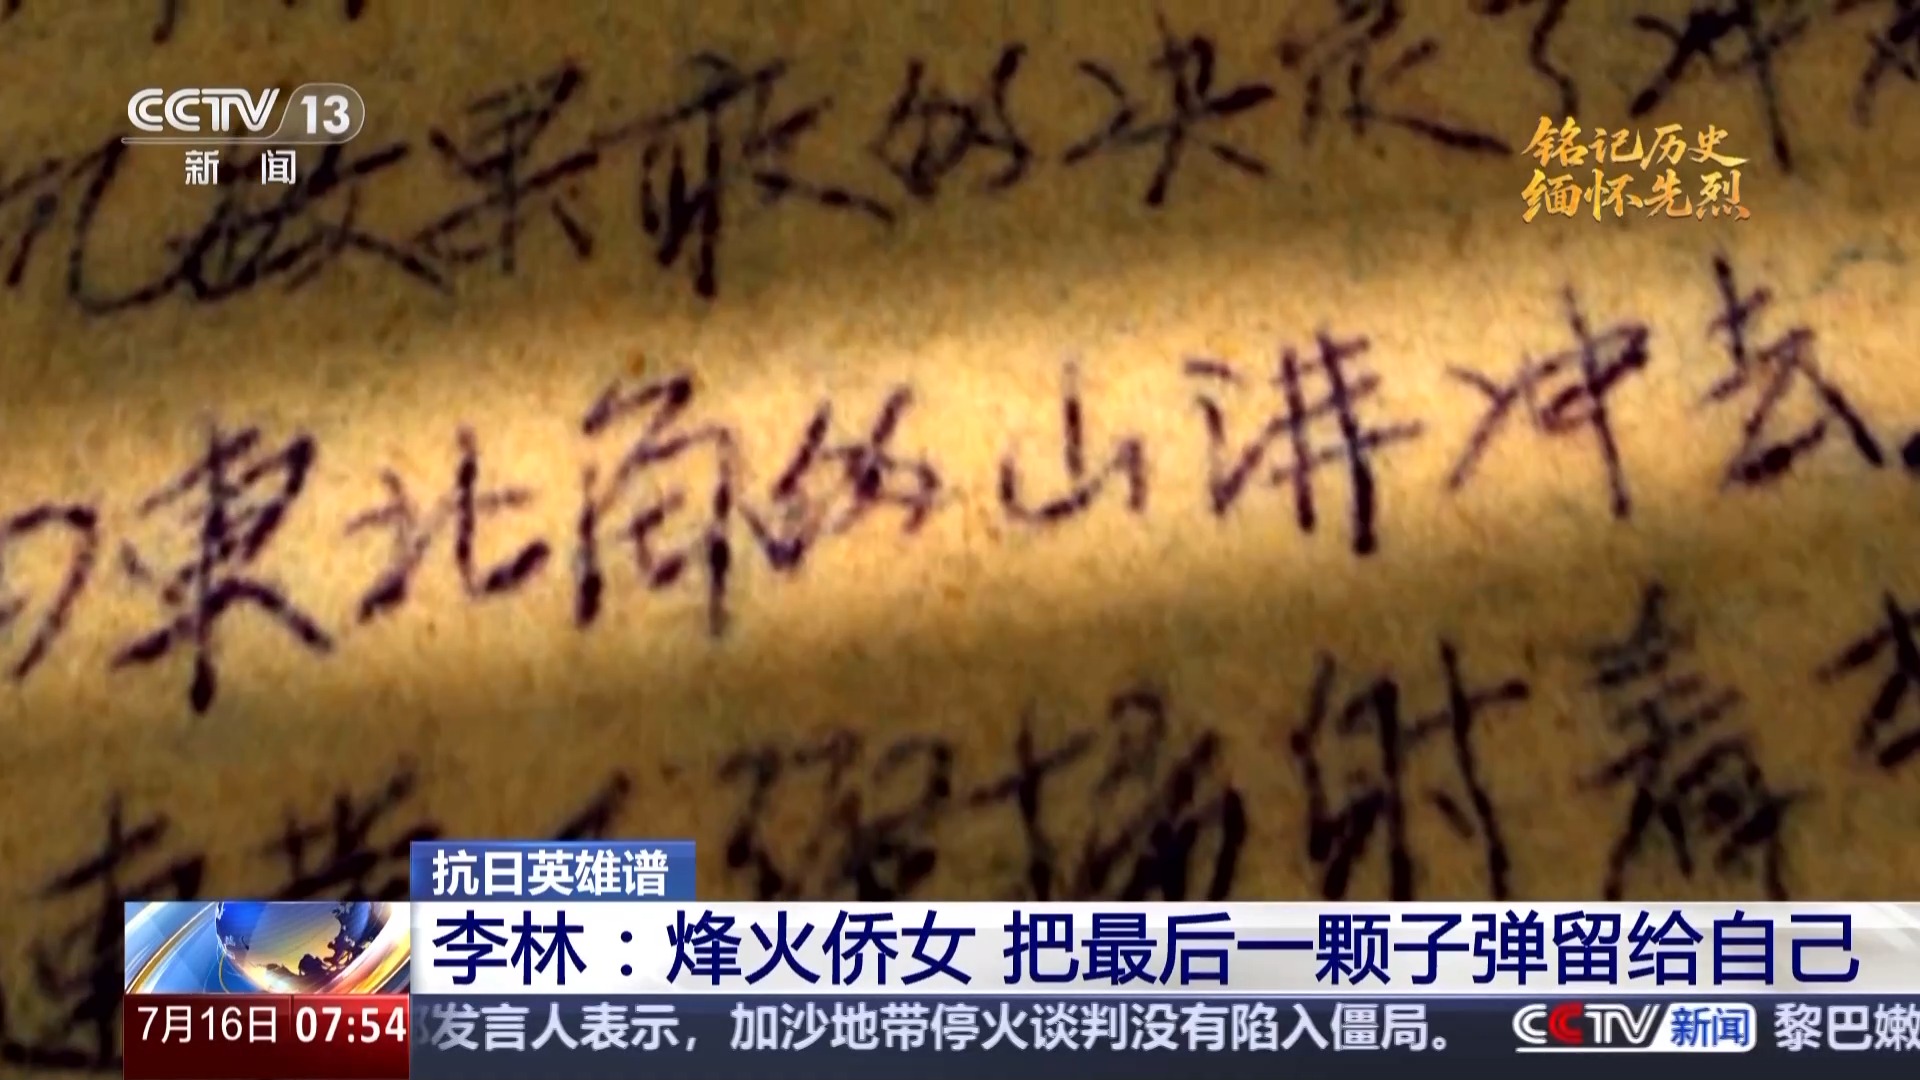 CCTV 13
新闻
铭记历史
缅怀先烈
果敢的决定了冲
東北角的山讲冲去
现场附着
抗日英雄谱
李林：烽火侨女 把最后一颗子弹留给自己
7月16日 07:54
发言人表示，加沙地带停火谈判没有陷入僵局。 CCTV 新闻 黎巴嫩